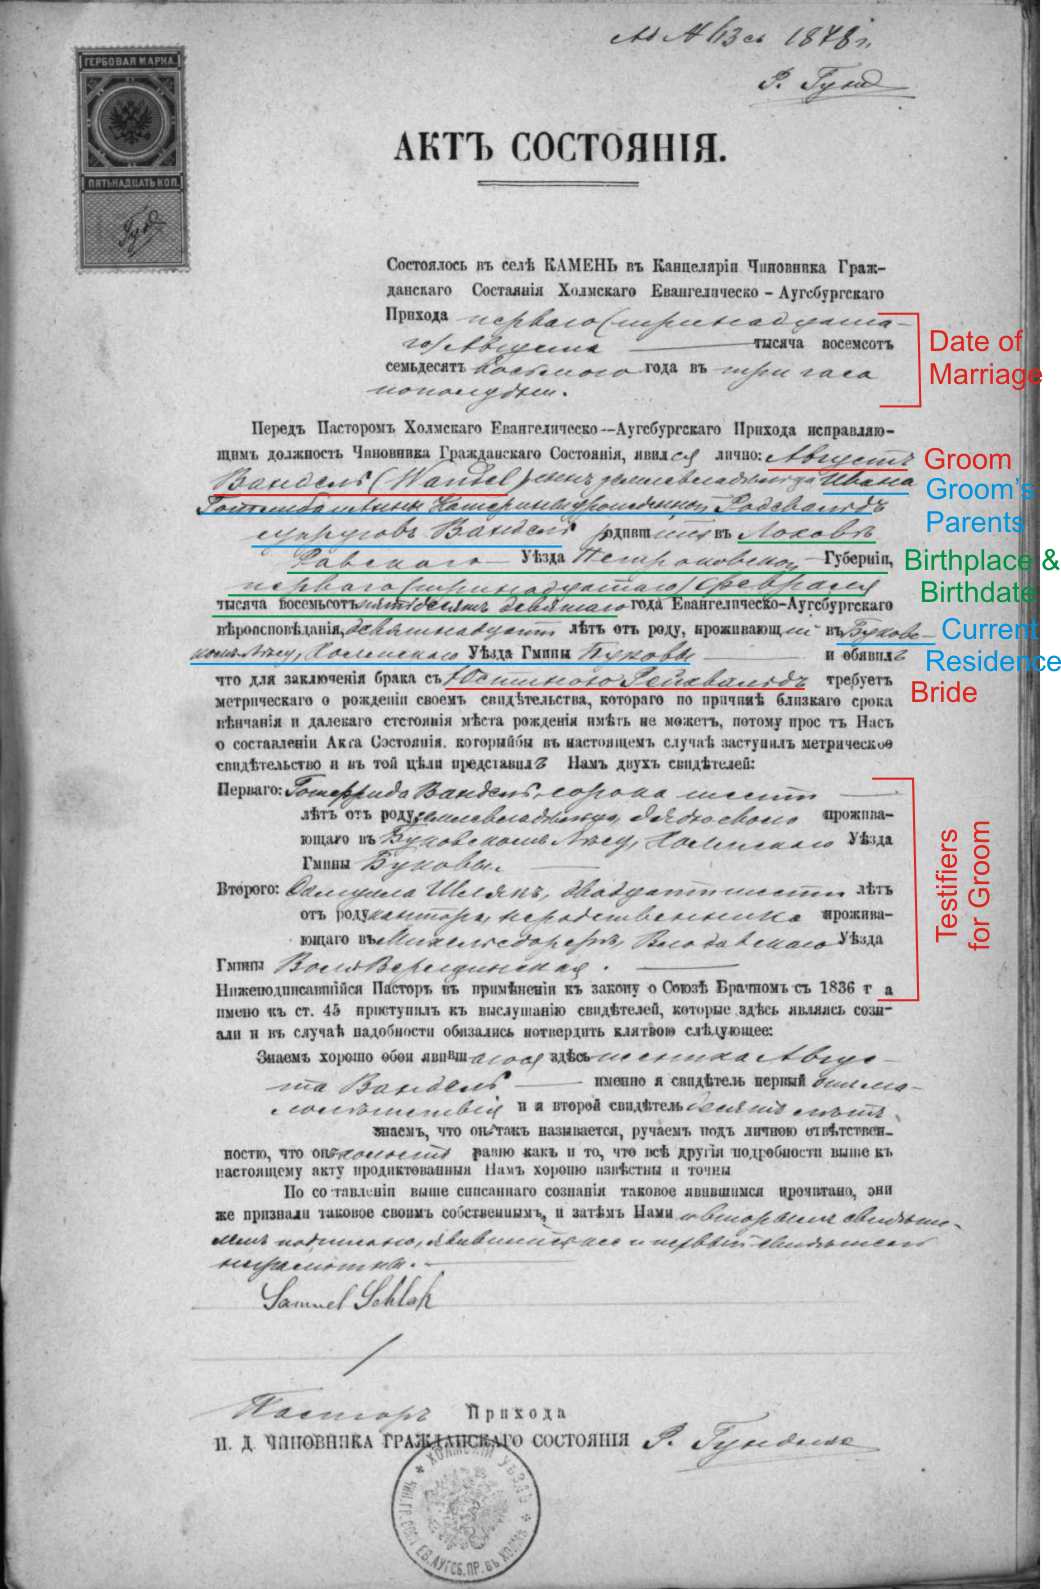 1878 г.
Р. Гунд
ГЕРБОВАЯ МАРКА.
ПЯТЬНАДЦАТЬ КОП.
Гунд
АКТЪ СОСТОЯНІЯ.
Состоялось въ селѣ КАМЕНЬ въ Канцеляріи Чиновника Граж-
данскаго Состаянія Холмскаго Евангелическо - Аугсбургскаго
Прихода перваго (тринадцата-
го) Августа тысяча восемсотъ
семьдесятъ восьмого года въ три часа
пополудни.
Date of
Marriage
Передъ Пасторомъ Холмскаго Евангелическо—Аугсбургскаго Прихода исправляю-
щимъ должность Чиновника Гражданскаго Состоянія, явился лично: Августъ
Groom
Вандель (Wandel) сынъ землевладельца Ивана
Groom's
Parents
Готлиба и Анны Катерины урожденной Родевальдъ
супруговъ Вандель родившійся въ Лоховѣ
Равскаго Уѣзда Петроковской Губерніи,
Birthplace &
Birthdate
перваго (тринадцатаго) февраля
тысяча восемьсотъ пятьдесятъ девятаго года Евангелическо-Аугсбургскаго
вѣроисповѣданія, девятнадцать лѣтъ отъ роду, проживающій въ Буковс-
Current
Residence
комъ Лѣсу, Холмскаго Уѣзда Гмины Буковы и обявилъ
что для заключенія брака съ Юстиною Рейхвальдъ требуетъ
Bride
метрическаго о рожденіи своемъ свидѣтельства, котораго по причинѣ близкаго срока
вѣнчанія и далекаго отстоянія мѣста рожденія имѣть не можетъ, потому прос тъ Насъ
о составленіи Акта Состоянія. которыйбы въ настоящемъ случаѣ заступилъ метрическое
свидѣтельство и въ той цѣли представилъ Намъ двухъ свидѣтелей:
Перваго: Готфрида Вандель, сорока шести
лѣтъ отъ роду, землевладельца, дядю своего прожива-
ющаго въ Буковскомъ Лѣсу, Холмскаго Уѣзда
Гмины Буковы.
Второго: Самуила Шлякъ, двадцати шести лѣтъ
отъ роду кантора, неродственника прожива-
ющаго въ Михельсдорфѣ, Влодавскаго Уѣзда
Гмины Воля Верещинская.
Testifiers
for Groom
Нижеподписавшійся Пасторъ въ примѣненіи къ закону о Союзѣ Брачномъ съ 1836 г а
имено къ ст. 45 приступилъ къ выслушанію свидѣтелей, которые здѣсь являясь созн-
али и въ случаѣ надобности обязались потвердить клятвою слѣдующее:
Знаемъ хорошо обои явившагося здѣсь Авгус-
та Вандель именно я свидѣтель первый отъ ма-
лолѣтствія и я второй свидѣтель десять лѣтъ,
знаемъ, что онъ такъ называется, ручаемъ подъ личною отвѣтствен-
ностію, что онъ холостъ равно какъ и то, что всѣ другія подробности выше къ
настоящему акту продиктованныя Намъ хорошо извѣстны и точны
По со тавленіи выше списаннаго сознанія таковое явившимся прочитано, они
же признали таковое своимъ собственнымъ, и затѣмъ Нами и вторымъ свидѣте-
лемъ подписано, явившійся же и первый свидѣтель
неграмотны.
Samuel Schlak
Пасторъ Прихода
И. Д. ЧИНОВНИКА ГРАЖДАНСКАГО СОСТОЯНІЯ Р. Гундлахъ